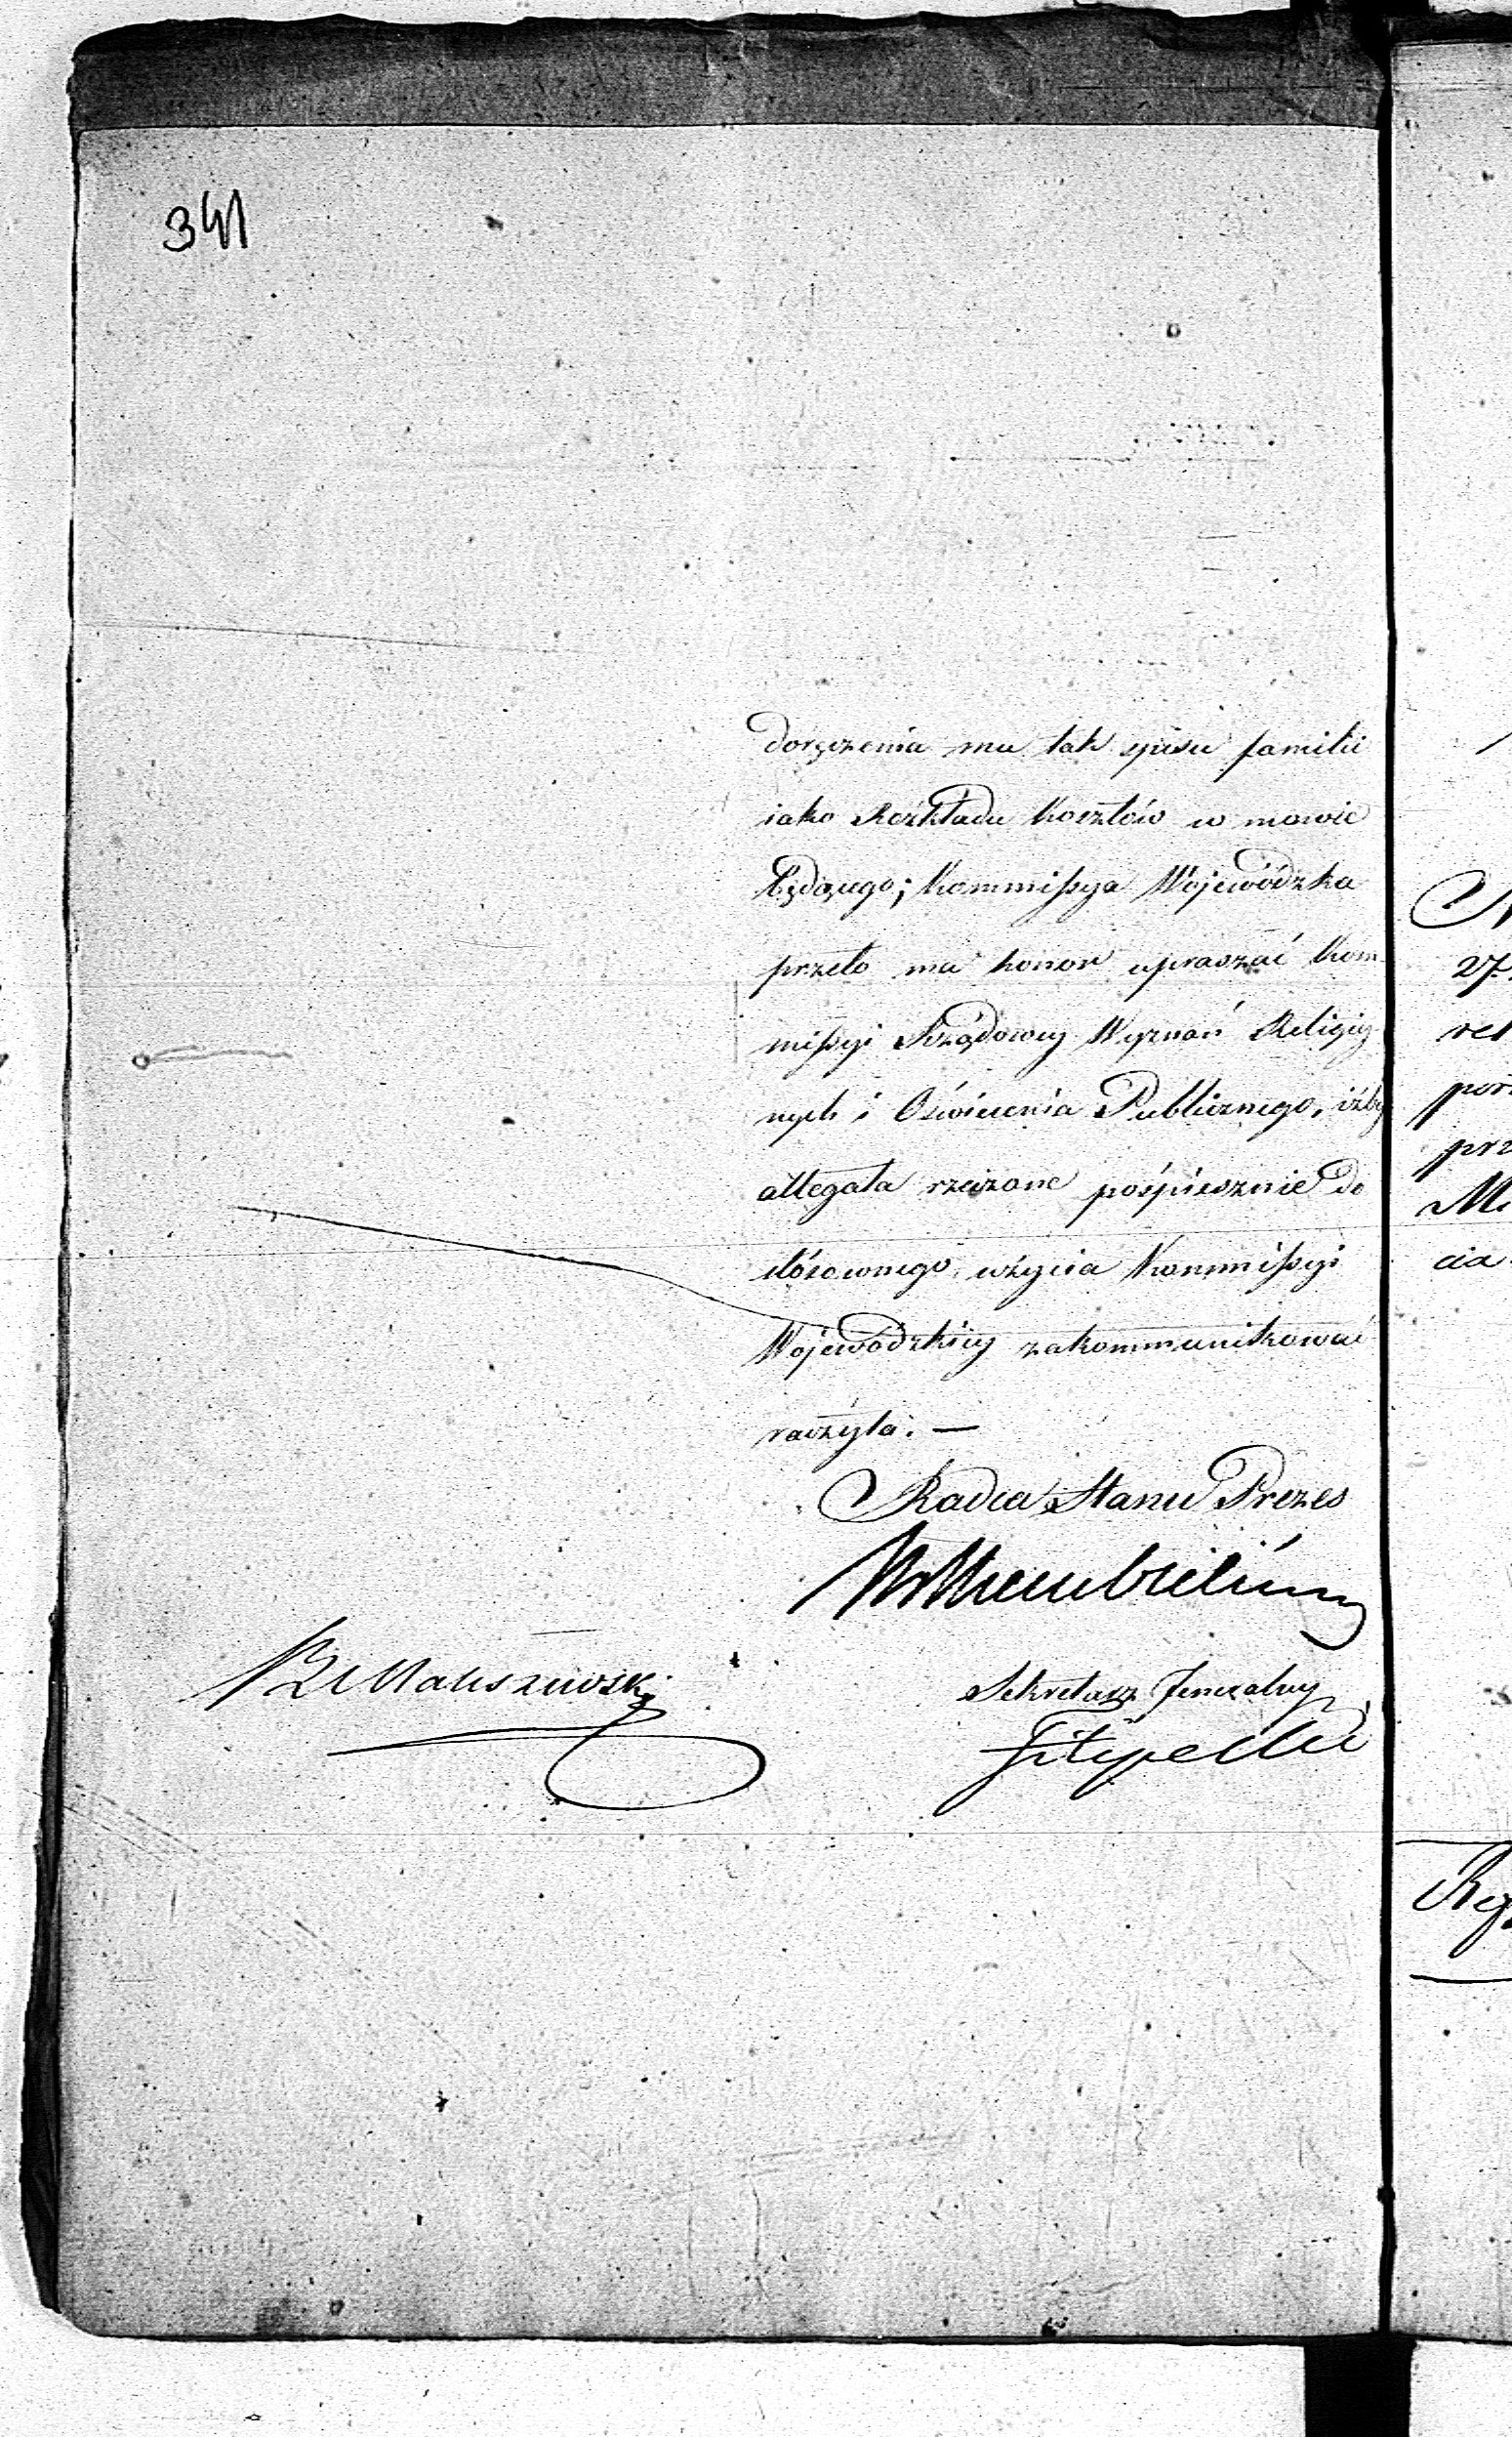 341
doręczenia mu tak spisu familii
iako Rozkładu kosztów w mowie
będącego; Kommissya Wojewódzka
przeto ma honor upraszać Kom-
missyi Rządowey Wyznań Religiy-
nych i Oświecenia Publicznego, iżby
allegata rzeczone pośpiesznie do
stósownego użycia Kommissyi
Wojewódzkiey zakommunikować
raczyła. —
Radca Stanu Prezes
Sekretarz Jeneralny
Filipecki
27.
por
prz
cia